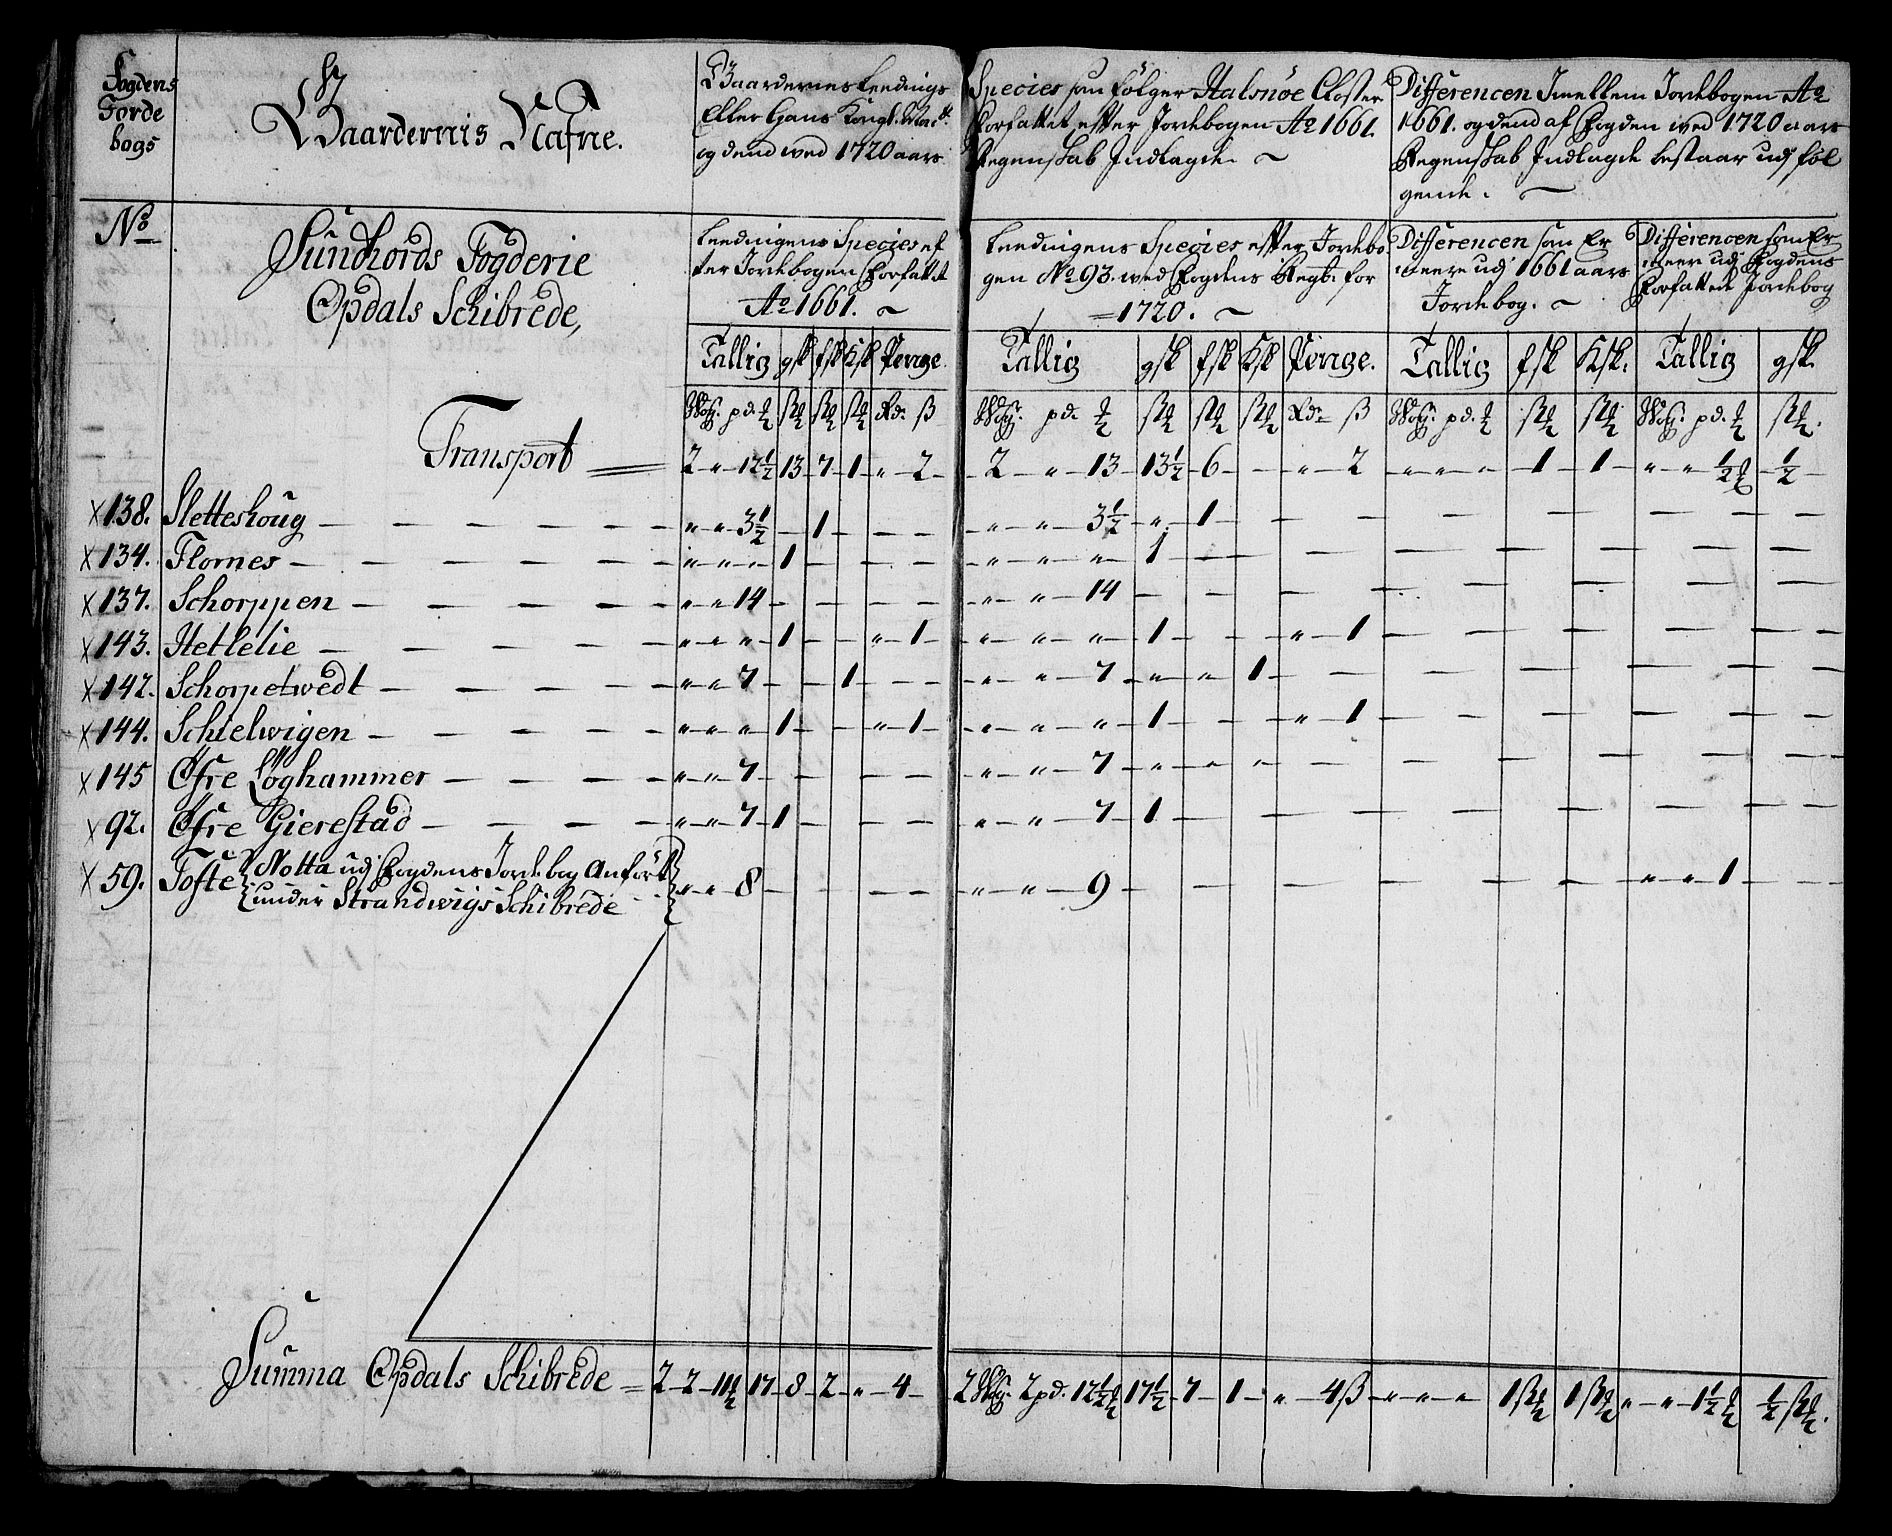 Fogdens
Jorde
bogs
Gaardernis Nafne.
Gaardernes Leedings
Eller Hans Kongl: May:tt
og dend wed 1720 aars
Species som følger Halsnöe Closter
Forfattet efter Jordebogen Ao 1661.
Regenskab Indlagde
Differencen Imellem Jordebogen Ao
1661. og dend af Fogden wed 1720 aars
Regenskab Indlagde bestaar udj föl
gende.
No
Sundhords Fogderie
Opdals Schibrede,
Leedingens Species ef
ter Jordebogen Forfattet
Ao 1661.
Leedingens Species efter Jordebo
gen No 93. wed Fogdens Regb: for
1720.
Differencen som Er
meere udj 1661 aars
Jordebog.
Differencen som Er
meere udj Fogdens
Forfattede Jordebog
Tallig gsk fsk Ksk Penge. Tallig gsk fsk Ksk Penge. Tallig fsk Ksk. Tallig gsk.
Transport 2 " 12½ 13 7 1 " 2 2 " 13 13½ 6 - " 2 " " " 1 1 " " ½ ½
x 138. Sletteshoug " " 3½ - 1 - - - " " 3½ " 1 - - - - - -
x 134. Flornes " " " 1 - - - " " " 1 - - - - - -
x 137. Schorppen " " 14 - - - - " " 14 - - - - - - -
x 143. Hetlelie " " " 1 - - " 1 " " " 1 - - " 1 - - - - -
x 142. Schorpetwedt " " 7 - - 1 - - " " 7 " " 1 - - - - - -
x 144. Schielwigen " " " 1 - " 1 " " " 1 - - " 1 - - - - -
x 145 Öfre Løghammer " " 7 - - - - - " " 7 " " " - - - - - -
x 92. Öfre Gierestad " " 7 1 - - - - " " 7 1 - - - - - - -
x 59. Tofte Notta udj Fogdens Jordebog Anfört
under Strandwigs Schibrede " " 8 - - - - - " " 9 - - - - - - - " " 1 -
Summa Opdals Schibrede = 2 2 11½ 17 8 2 " 4 2 Wog: 2 pd: 12½ 17½ 7 1 " 4ß " " " 1 1 " " 1½ ½